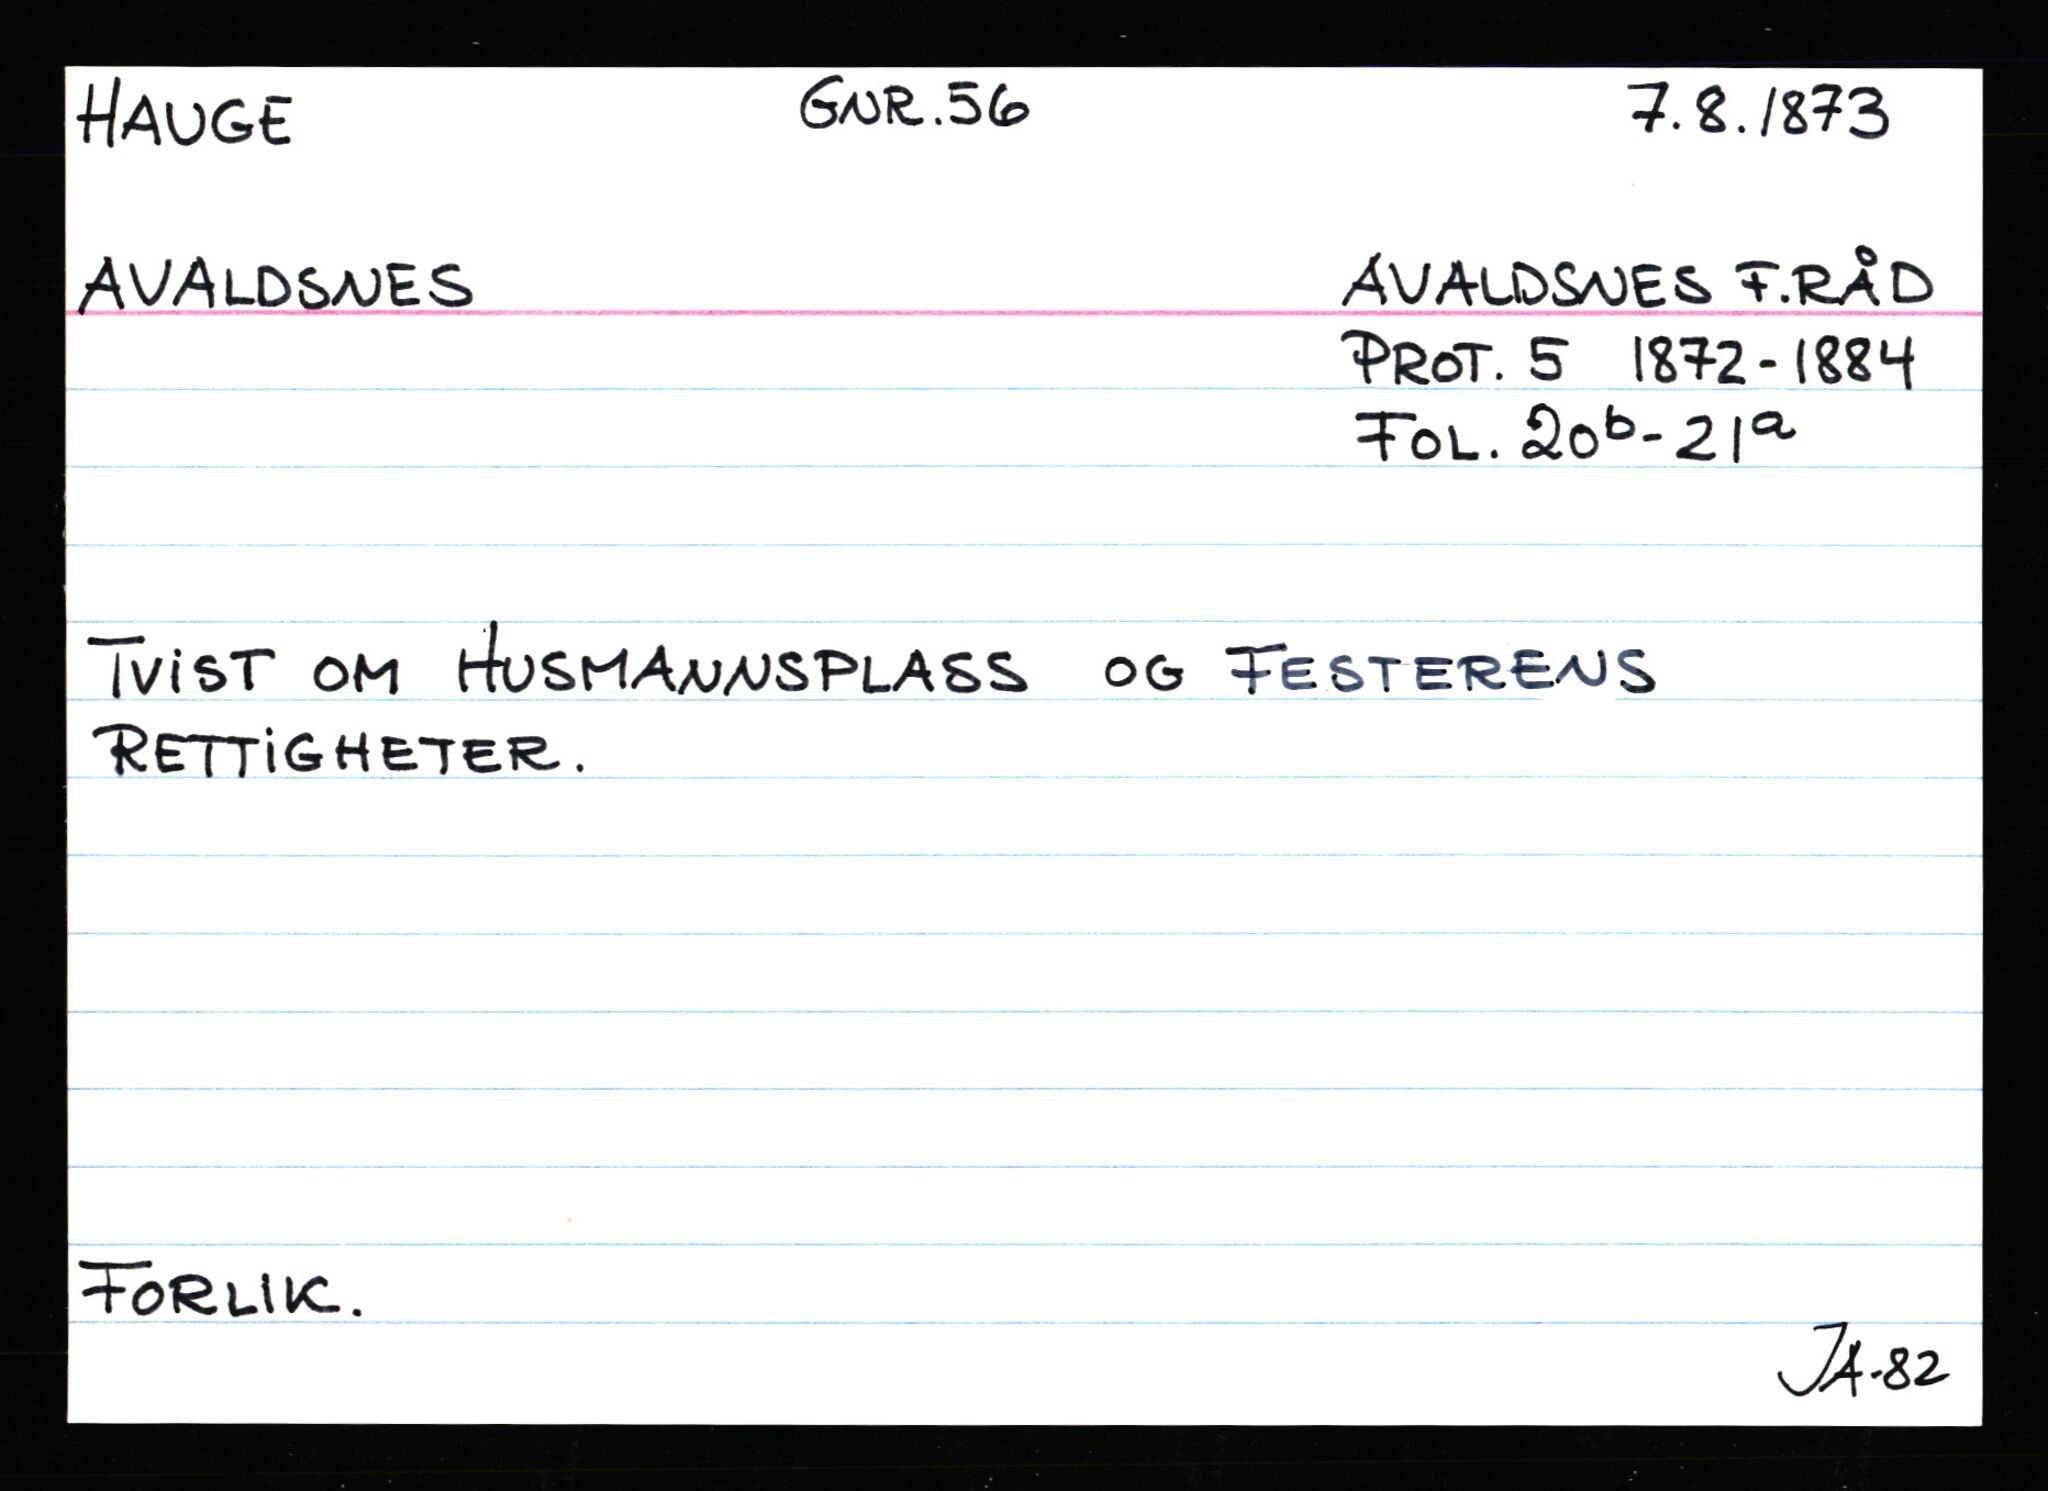 HAUGE GNR.56 7.8.1873
AVALDSNES AVALDSNES F.RÅD
PROT. 5 1872-1884
FOL. 20b-21a
TVIST OM HUSMANNSPLASS OG FESTERENS
RETTIGHETER.
FORLIK.
JA-82